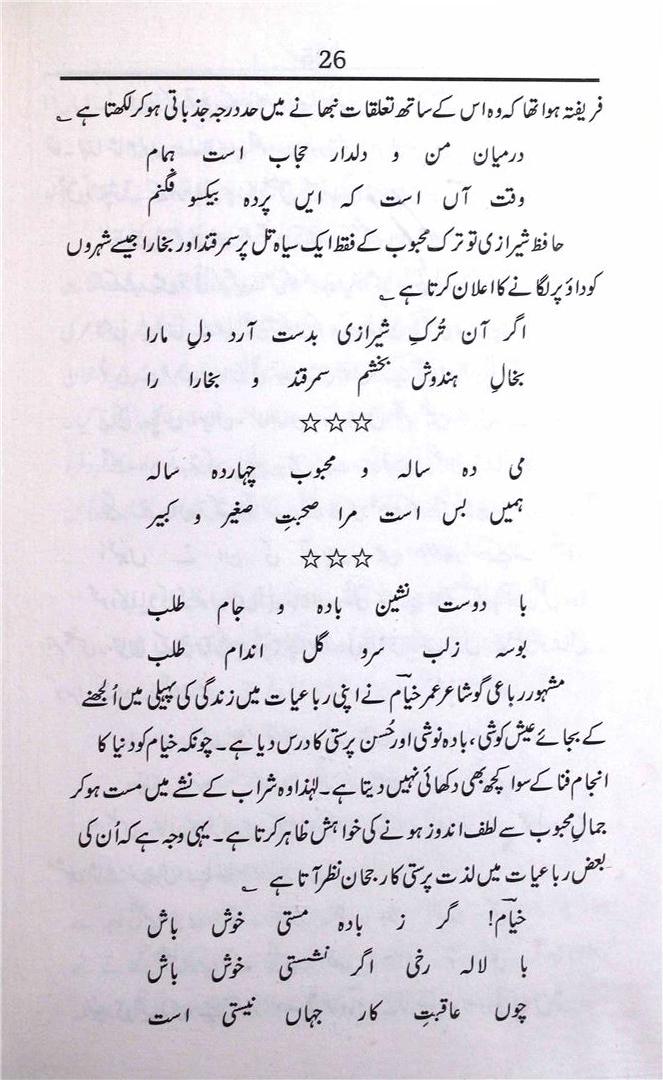 26
فریفتہ ہوا تھا کہ وہ اس کے ساتھ تعلقات نبھانے میں حد درجہ جذباتی ہو کر لکھتا ہے ؎
درمیان من و دلدار حجاب است ہمام
وقت آں است کہ ایں پردہ بیکسو فگنم
حافظ شیرازی تو ترک محبوب کے فقط ایک سیاہ تل پر سمرقند اور بخارا جیسے شہروں
کو داؤ پر لگانے کا اعلان کرتا ہے ؎
اگر آن تُرکِ شیرازی بدست آرد دلِ مارا
بخالِ ہندوش بخشم سمرقند و بخارا را
☆☆☆
می دہ سالہ و محبوب چہاردہ سالہ
ہمیں بس است مرا صحبتِ صغیر و کبیر
☆☆☆
با دوست نشین بادہ و جام طلب
بوسہ زلب سرو گل اندام طلب
مشہور رباعی گو شاعر عمر خیامؔ نے اپنی رباعیات میں زندگی کی پہیلی میں اُلجھنے
کے بجائے عیش کوشی، بادہ نوشی اور حُسن پرستی کا درس دیا ہے۔ چونکہ خیام کو دنیا کا
انجام فنا کے سوا کچھ بھی دکھائی نہیں دیتا ہے۔ لہٰذا وہ شراب کے نشے میں مست ہو کر
جمالِ محبوب سے لطف اندوز ہونے کی خواہش ظاہر کرتا ہے۔ یہی وجہ ہے کہ اُن کی
بعض رباعیات میں لذت پرستی کا رجحان نظر آتا ہے ؎
خیامؔ! گر ز بادہ مستی خوش باش
با لالہ رخی اگر نشستی خوش باش
چوں عاقبتِ کار جہاں نیستی است